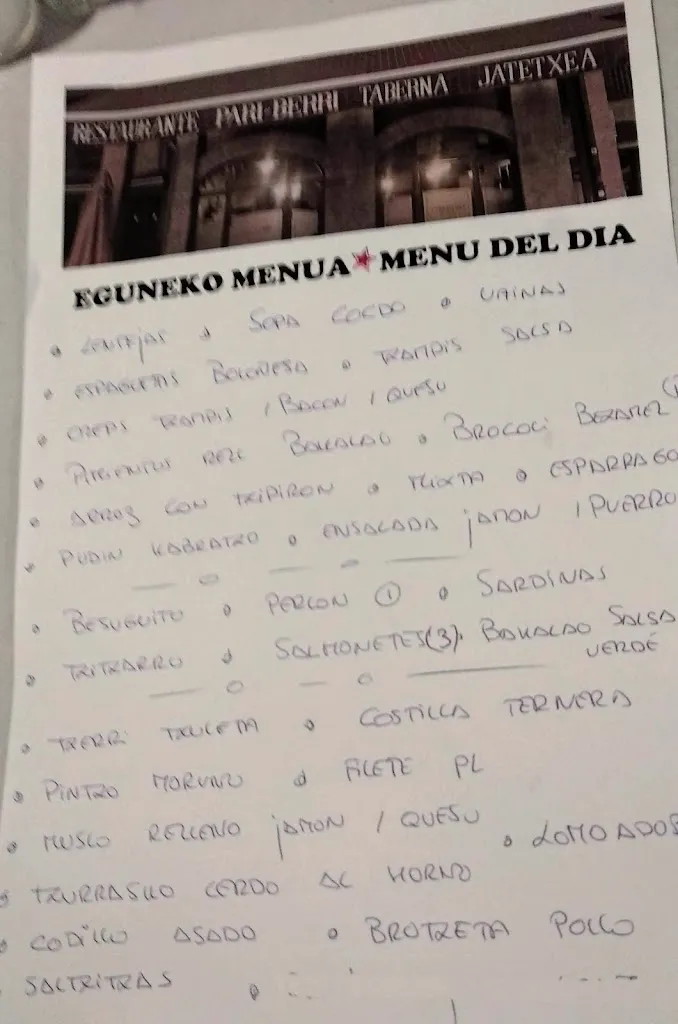 RESTAURANTE PARI-BERRI TABERNA JATETXEA
EGUNEKO MENUA ★ MENU DEL DIA
• LENTEJAS • SOPA COCIDO • VAINAS
• ESPAGUETIS BOLOÑESA • TXANPIS SALSA
• CREPS TXANPIS / BACON / QUESO
• PIMIENTOS RELL BAKALAO • BROCOLI BEXAMEL
• ARROZ CON TXIPIRON • MIXTA • ESPARRAGO
• PUDIN KABRATXO • ENSALADA JAMON / PUERRO
• BESUGUITO • PERLON ① • SARDINAS
• TXITXARRO • SALMONETES(3). BAKALAO SALSA VERDE
• TXERRI TXULETA • COSTILLA TERNERA
• PINTXO MORUNO • FILETE PL
• MUSLO RELLENO JAMON / QUESO
• LOMO ADOB
• TXURRASKO CERDO AL HORNO
• CODILLO ASADO • BROTXETA POLLO
SALTXITXAS •